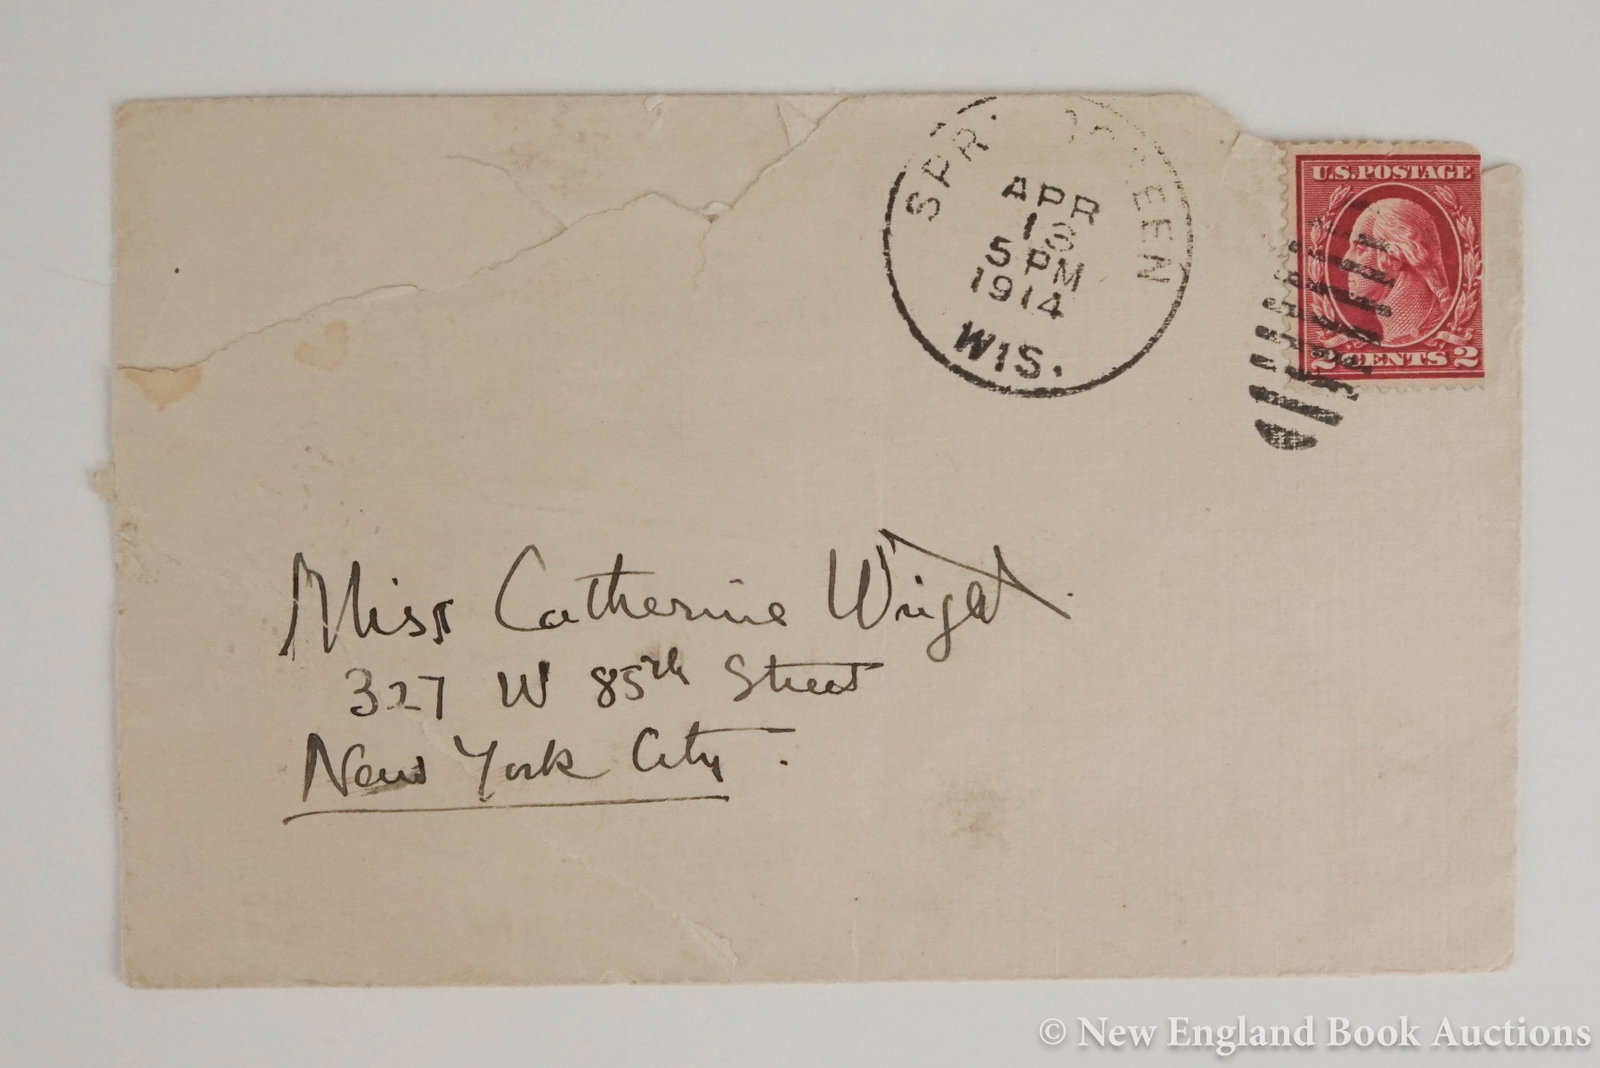 SPR. GREEN
APR
5 PM
1914
WIS.
U.S. POSTAGE
2 CENTS 2
Miss Catherine Wright.
327 W 85th Street
New York City.
© New England Book Auctions